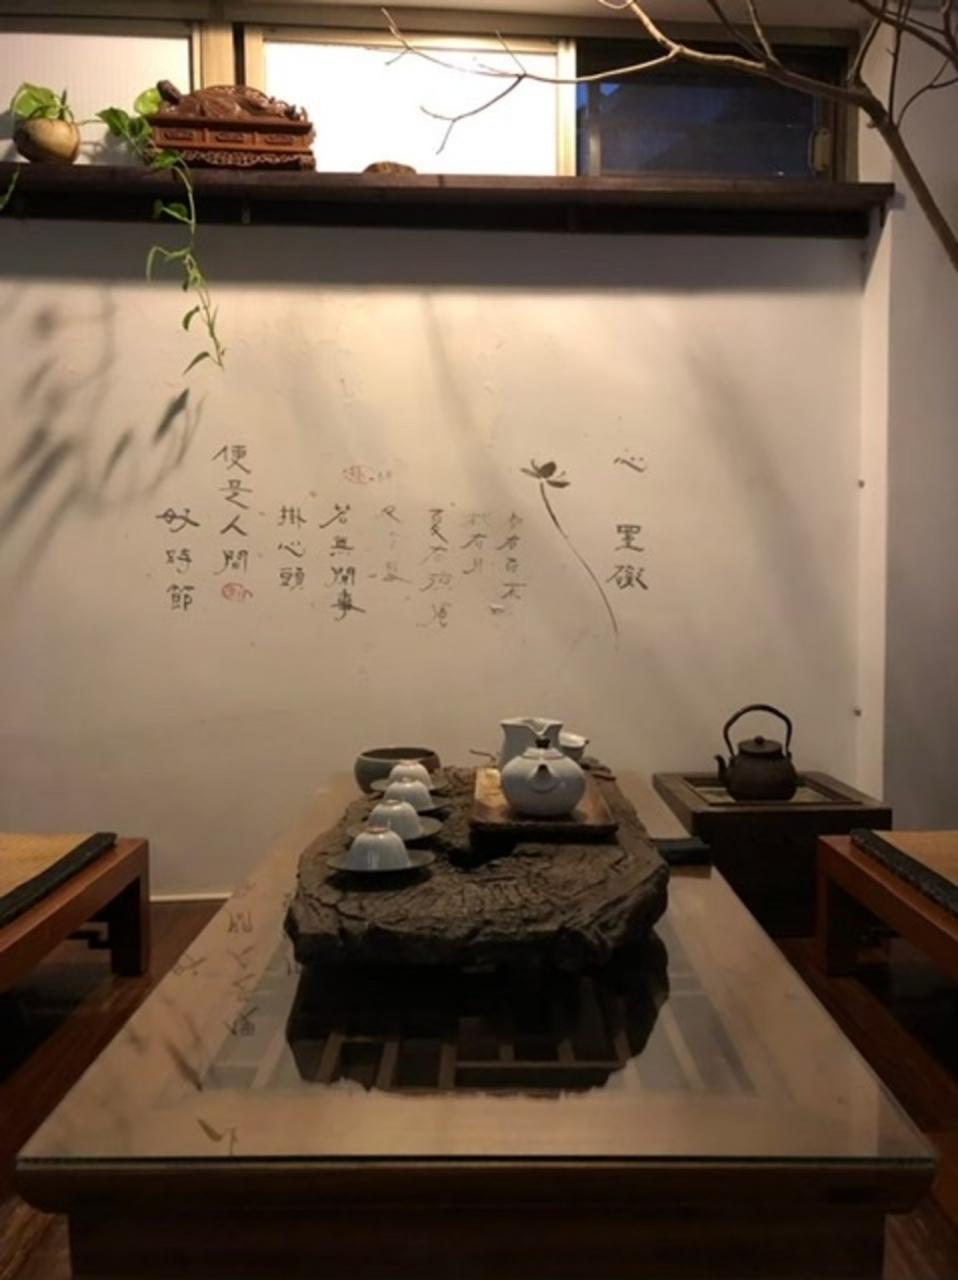 心
春有百花
秋有月
夏有涼風
若無閒事
掛心頭
便是人間
好時節